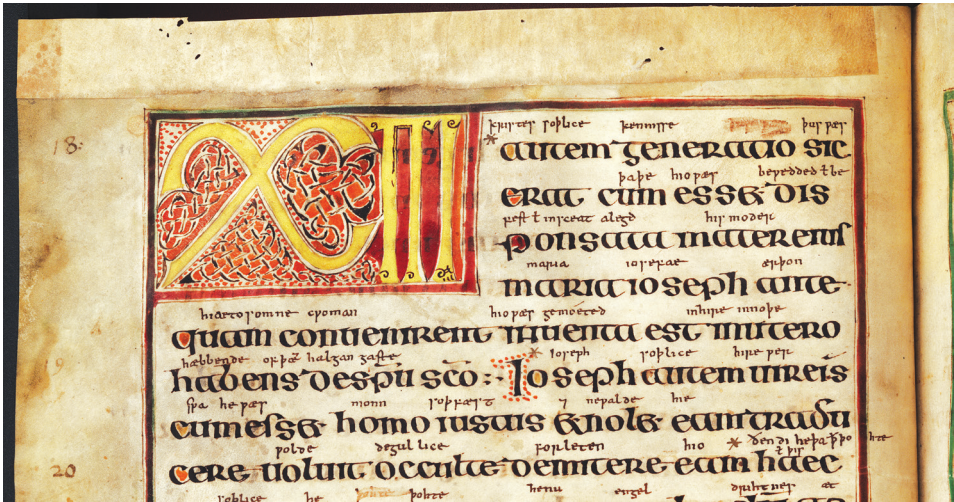 18·
kristes soþlice kennisse þus wæs
XPI autem generatio sic
þaþe hio wæs bewedded ł be
erat cum ess& dis
fest ł in sceat alegd his moder
ponsata mater eius
maria iosefae ærþon
maria ioseph ante
hiæ tosomne cwoman hio wæs gemoeted in hire innoþe
quam conuenirent inuenta est in utero
hæbbende of þæ halgan gaste ioseph soþlice hire wer
19
habens de spu sco : Ioseph autem uir eis
swa he wæs monn soþfæst 7 ne walde hie
cum ess& homo iustus & nol& eam tradu
wolde degullice forleten hio
20
cere uoluit occulte demitere eam haec
soþlice he þohte engel